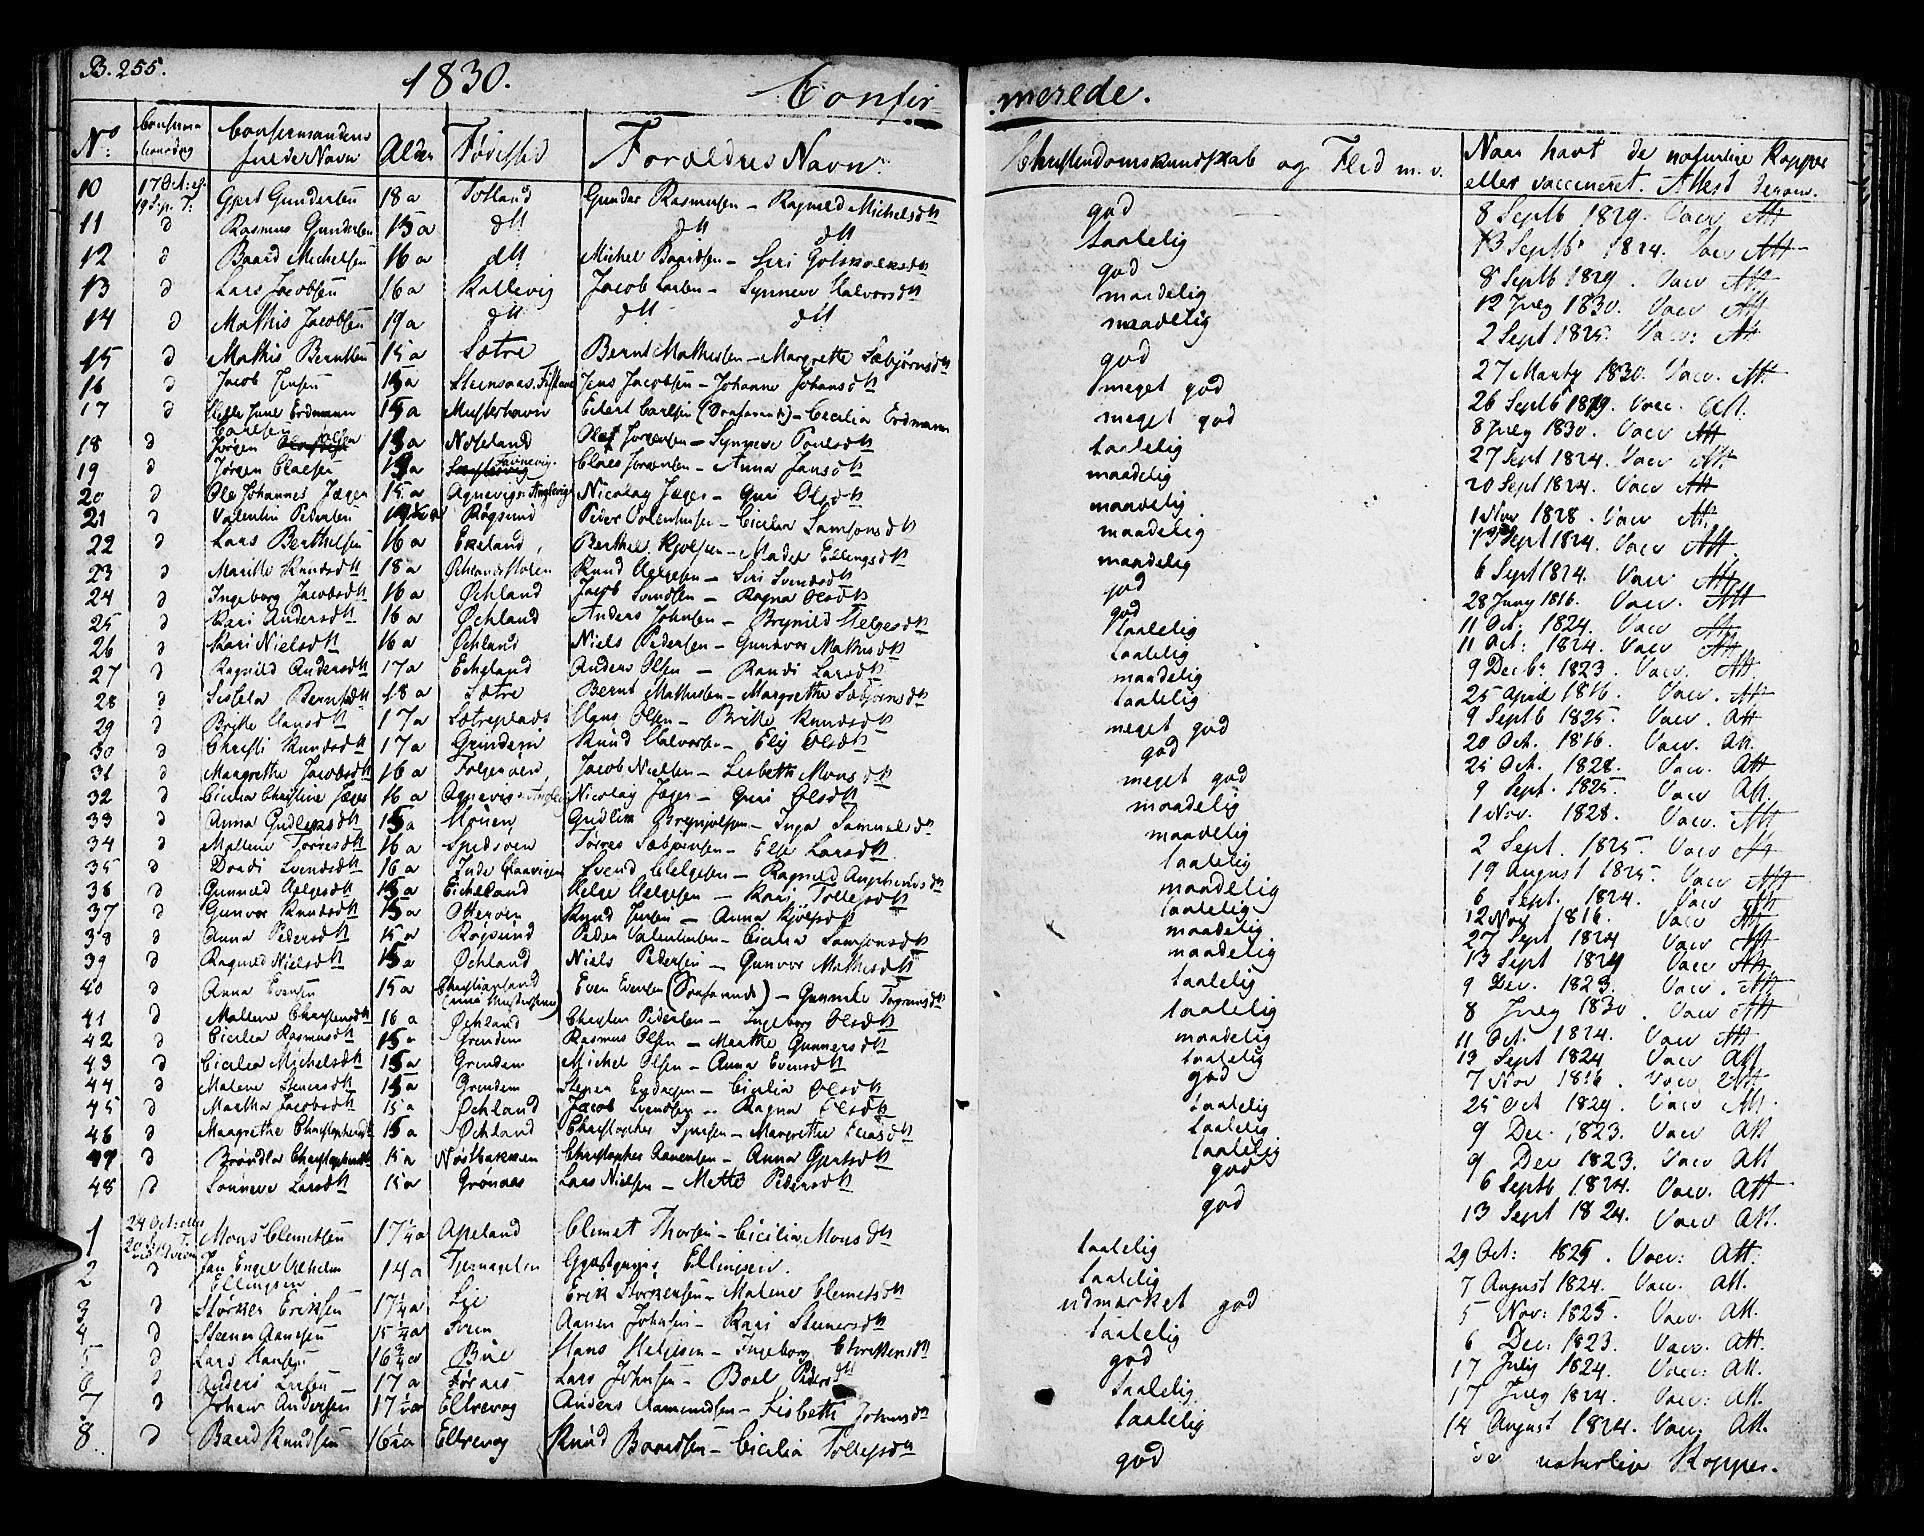 B. 255.
1830. Confir merede.
No: Alder Fødested Forældres Navn Christendomskundskab og Flid m. v. Naar havt de naturlige Kopper
eller vaccineret. Attest derom.
10 17 Oct: Gjert Gundersen 18 a Totland Gunder Rasmusen – Ragnild Michelsdtr god 8 Septb 1829. Vacc Att
11 d Rasmus Gundersen 15 a dtt dtt dtt taalelig 13 Septb 1824. Vacc Att
12 d Baard Michelsen 16 a dtt Michel Baardsen – Siri god 8 Septb 1829. Vacc Att
13 d Lars Jacobsen 16 a Kallevig Jacob Larsen – Synneve Halvorsdtr maadelig 12 July 1830. Vacc Att
14 d Mathis Jacobsen 19 a dtt dtt dtt maadelig 2 Sept 1825. Vacc: Att
15 d Mathis Berntsen 15 a Sætre Bernt Mathissen – Margrethe Sæbjørnsdtr god 27 Marty 1830. Vacc. Att
16 d Jacob Jensen 15 a Jens Jacobsen – Johanne Johansdtr meget god 26 Septb 1829. Vacc. Att.
17 d Erdmann Carlsen 15 a Mosterhavn Edert Carlsen – Cecilia Erdmann meget god 8 July 1830. Vacc Att
18 d Jørgen Olsen 15 a Nobeland Olaf Jorgensen – Synneve Poulsdtr taalelig 27 Sept 1824. Vacc Att
19 d Jørgen Claesen a Claes Jorgensen – Anna Jansdtr maadelig 20 Sept 1824. Vacc Att
20 d Ole Johannes Jæger 15 a Agnevig Nicolay Jæger – Guri Olsdtr maadelig 1 Nov 1828. Vacc Att.
21 d Valentin Pedersen Røgsund Peder – Cicilia Samsonsdtr maadelig 13 Sept 1824. Vacc Att.
22 d Lars Berthelsen 16 a Ekeland Berthel – Ellingsdtr maadelig 6 Sept 1824. Vacc Att
23 d Maritte Knudsdtr 18 a Knud Helgesen – Siri Svendsdtr god 28 Juny 1816. Vacc. Att
24 d Ingeborg Jacobsdtr 16 a Øchland Jacob Svendsen – Ragna Olsdtr god 11 Oct. 1824. Vacc Att
25 d Kari Andersdtr 16 a Øchland Anders Johnsen – Brynild Helgesdtr taalelig 11 Oct: 1824. Vacc Att
26 d Kari Nielsdtr 16 a Øchland Niels Pedersen – Gunnvor Mathisdtr taalelig 9 Decb: 1823. Vacc. Att.
27 d Ragnild Andersdtr 17 a Echeland Anders Olsen – Randi Larsdtr maadelig 25 April 1816. Vacc. Att
28 d Sisela Berntsdtr 18 a Sætre Bernt Mathissen – Margrethe Sæbjørnsdtr taalelig 9 Septb 1825. Vacc. Att
29 d Britte Hansdtr 17 a Sætreplads Hans Olsen – Britte Knudsdtr meget god 20 Oct. 1816. Vacc. Att.
30 d Christi Knudsdtr 17 a Knud Halvorsen – Eli Olsdtr god 25 Oct. 1828. Vacc. Att
31 d Maagrethe Jacobsdtr 16 a Folgerøen Jacob Nielsen – Lisbeth Monsdtr meget god 9 Sept. 1825. Vacc Att.
32 d Cicilia Christine Jæger 16 a Agnevig Nicolay Jæger – Guri Olsdtr maadelig 1 Nov. 1828. Vacc. Att
33 d Anna 15 a Gudleik Brynjolsen – Inga Samuelsdtr maadelig 2 Sept. 1825. Vacc Att
34 d Mallene Tørresdtr 16 a Spidsøen Tørres – Else Larsdtr taalelig 19 August 1825. Vacc Att
35 d Dordi Svendsdtr 16 a Svend Helgesen – Ragnild maadelig 6 Sept. 1824. Vacc Att
36 d Gunnild Helgesdtr 15 a Eicheland Helge Helgesen – Kari Tollefsdtr taalelig 12 Nov 1816. Vacc Att
37 d Gunvor Knudsdtr 15 a Otterøen Knud Jensen – Anna maadelig 27 Sept 1824 Vacc Att
38 d Anna Pedersdtr 15 a Røgsund Peder Valentinsen – Cicilia Samsonsdtr maadelig 13 Sept 1824 Vacc Att
39 d Ragnild Nielsdtr 15 a Øchland Niels Pedersen – Gunvor Mathisdtr taalelig 9 Dec. 1823. Vacc. Att
40 d Anna Evensen 15 a Even Evensen – taalelig 8 July 1830. Vacc Att
41 d Malene Christensdtr 16 a Øchland Christen Pedersen – Ingeborg Olsdtr maadelig 11 Oct. 1824. Vacc Att
42 d Cicilia Rasmusdtr 15 a Grindem Rasmus Olsen – Marthe Gunnersdtr taalelig 13 Sept 1824 Vacc Att
43 d Cicilia Michelsdtr 15 a Grindem Michel Olsen – Anna Evensdtr god 7 Nov 1816. Vacc Att
44 d Malene 15 a Grindem – Cicilia Olsdtr taalelig 25 Oct 1829. Vacc Att.
45 d Martha Jacobsdtr 15 a Øchland Jacob Svendsen – Ragna Olsdtr taalelig 9 Dec. 1823. Vacc Att
46 d Maagrethe Christophersdtr 15 a Øchland Christopher – Margrethe taalelig 9 Dec 1823. Vacc Att
47 d Christophersdtr 15 a Nøstbakken Christopher – Anna Gjertsdtr god 6 Septb 1824. Vacc. Att
48 d Sønneve Larsdtr 15 a Grønaas Lars Nielsen – Mette Pedersdtr god 13 Sept 1824. Vacc Att.
1 24 Oct: Mons Clemetsen 17 1/4 a Apeland Clemet Thorsen – Cicilia Monsdtr taalelig 29 Oct: 1825. Vacc: Att.
2 d Jan Engel Ellingsen 14 a Tjernagelen Gjæstgiver Ellingsen. taalelig 7 August 1824. Vacc Att.
3 d Størker Eriksen 17 1/4 a Lie Erik Størkersen – Malene Clemetsdtr udmærket god 5 Nov: 1825. Vacc. Att.
4 d Steener Aanesen 15 1/4 a Aanen Johnsen – Kari Steenersdtr taalelig 6 Dec: 1823. Vacc. Att.
5 d Lars Hansen 16 3/4 a Bue Hans Helgesen – Ingeborg god 17 July 1824. Vacc: Att.
6 d Anders Larsen 17 a Førnæs Lars Johnsen – Boel Pedersdtr taalelig 17 July 1824. Vacc: Att.
7 d Johan Andersen 17 1/2 a Ellrevog Anders Aamundsen – Lisbeth Johnsdtr taalelig 14 August 1824. Vacc: Att.
8 d Baard Knudsen 16 1/2 a Ellrevog Knud Baardsen – Cicilia Tollefsdtr god de naturlige Kopper.